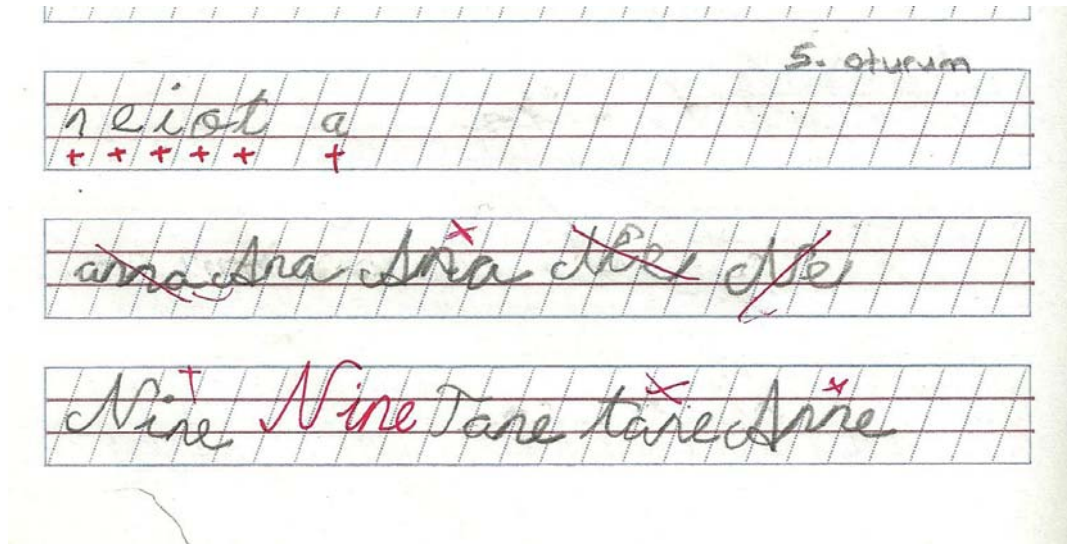 5. oturum
n e i o t a
anna Ana Ana Ne Ne
Nine Nine Tane tane Anne